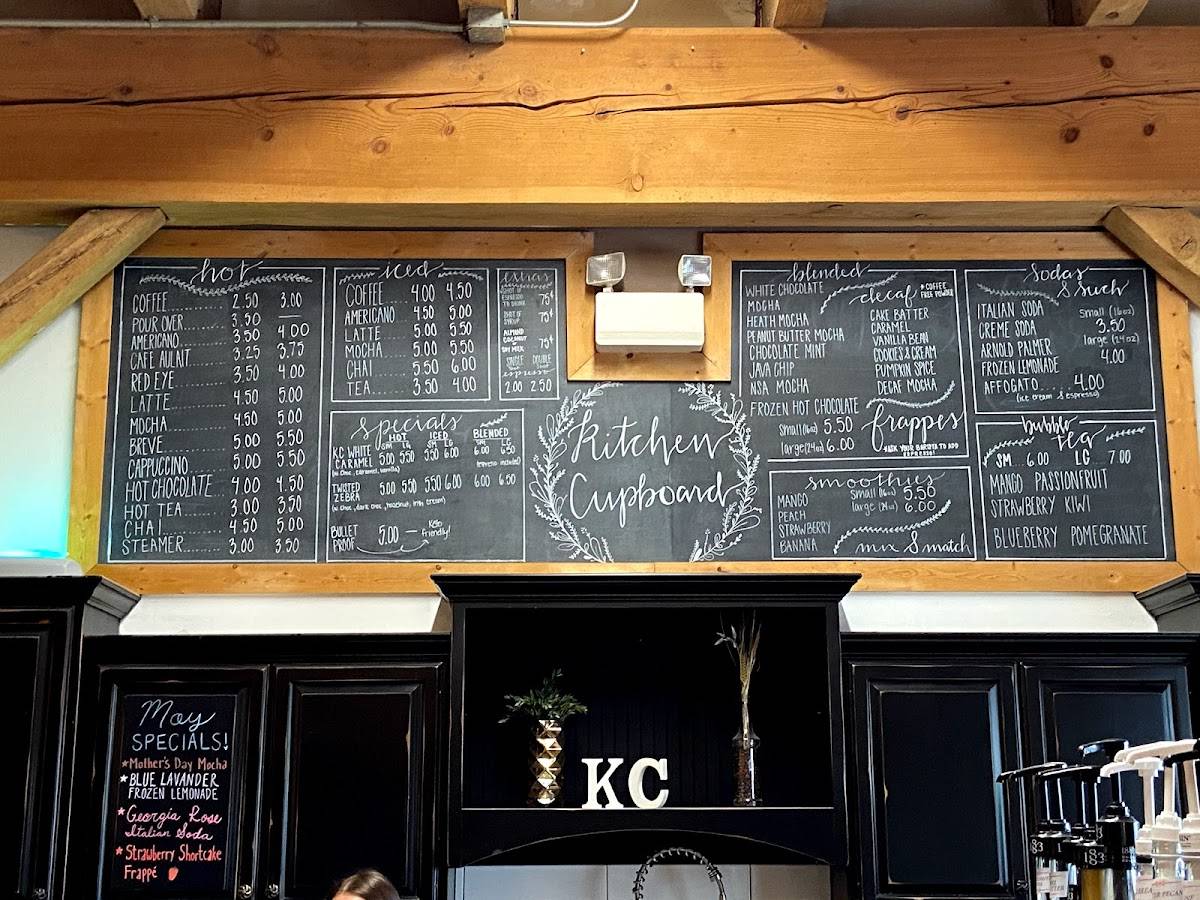 hot
COFFEE 2.50 3.00
POUR OVER 3.50 —
AMERICANO 3.50 4.00
CAFE AULAIT 3.25 3.75
RED EYE 3.50 4.00
LATTE 4.50 5.00
MOCHA 4.50 5.00
BREVE 5.00 5.50
CAPPUCCINO 5.00 5.50
HOT CHOCOLATE 4.00 4.50
HOT TEA 3.00 3.50
CHAI 4.50 5.00
STEAMER 3.00 3.50
iced
COFFEE 4.00 4.50
AMERICANO 4.50 5.00
LATTE 5.00 5.50
MOCHA 5.00 5.50
CHAI 5.50 6.00
TEA 3.50 4.00
extras
SHOT OF
ESPRESSO
TO DRINK 75¢
SHOT OF
SYRUP 75¢
ALMOND
COCONUT
SOY MILK 75¢
SINGLE DOUBLE
espresso
2.00 2.50
specials
HOT ICED BLENDED
SM LG SM LG SM LG
KC WHITE
CARAMEL 5.00 5.50 5.50 6.00 6.00 6.50
TWISTED
ZEBRA 5.00 5.50 5.50 6.00 6.00 6.50
BULLET
PROOF 5.00 — Keto
friendly!
Kitchen
Cupboard
blended
WHITE CHOCOLATE
MOCHA
HEATH MOCHA
PEANUT BUTTER MOCHA
CHOCOLATE MINT
JAVA CHIP
NSA MOCHA
FROZEN HOT CHOCOLATE
Small (16oz) 5.50
large (24oz) 6.00
decaf * COFFEE
FREE POWDER
CAKE BATTER
CARAMEL
VANILLA BEAN
COOKIES & CREAM
PUMPKIN SPICE
DECAF MOCHA
frappes
*ASK YOUR BARISTA TO ADD
ESPRESSO!
smoothies
MANGO
PEACH
STRAWBERRY
BANANA
Small (16oz) 5.50
large (24oz) 6.00
mix & match
Sodas
& Such
ITALIAN SODA
CREME SODA
ARNOLD PALMER
FROZEN LEMONADE
Small (16oz)
3.50
large (24oz)
4.00
AFFOGATO 4.00
(ice cream & espresso)
bubble
tea
SM 6.00 LG 7.00
MANGO PASSIONFRUIT
STRAWBERRY KIWI
BLUEBERRY POMEGRANATE
KC
May
SPECIALS!
*Mother's Day Mocha
*BLUE LAVANDER
FROZEN LEMONADE
*Georgia Rose
Italian Soda
*Strawberry Shortcake
Frappé